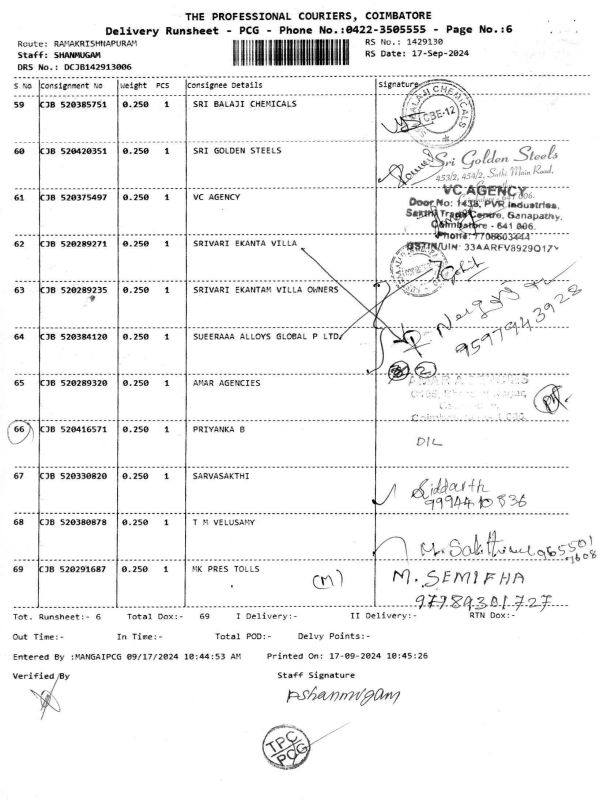 THE PROFESSIONAL COURIERS, COIMBATORE
Delivery Runsheet - PCG - Phone No.:0422-3505555 - Page No.:6
Route: RAMAKRISHNAPURAM RS No.: 1429130
Staff: SHANMUGAM RS Date: 17-Sep-2024
DRS No.: DCJB142913006
S No Consignment No Weight PCS Consignee Details Signature
59 CJB 520385751 0.250 1 SRI BALAJI CHEMICALS
BALAJI CHEMICALS
CBE-12
60 CJB 520420351 0.250 1 SRI GOLDEN STEELS
Sri Golden Steels
453/2, 454/2, Sathi Main Road,
61 CJB 520375497 0.250 1 VC AGENCY
VC AGENCY
Door No: 143B, PVR Industries,
Sakthi Trade Centre, Ganapathy,
Coimbatore - 641 006.
Phone: 7708603444
GSTIN/UIN: 33AARFV8929Q1ZY
62 CJB 520289271 0.250 1 SRIVARI EKANTA VILLA
63 CJB 520289235 0.250 1 SRIVARI EKANTAM VILLA OWNERS
9597943928
64 CJB 520384120 0.250 1 SUEERAAA ALLOYS GLOBAL P LTD.
2
65 CJB 520289320 0.250 1 AMAR AGENCIES
AMAR AGENCIES
66 CJB 520416571 0.250 1 PRIYANKA B
D/L
67 CJB 520330820 0.250 1 SARVASAKTHI
Siddarth
9994410836
68 CJB 520380878 0.250 1 T M VELUSAMY
69 CJB 520291687 0.250 1 MK PRES TOLLS
(M)
M. SEMIFHA
97789301727
Tot. Runsheet:- 6 Total Dox:- 69 I Delivery:- II Delivery:- RTN Dox:-
Out Time:- In Time:- Total POD:- Delvy Points:-
Entered By :MANGAIPCG 09/17/2024 10:44:53 AM Printed On: 17-09-2024 10:45:26
Verified By Staff Signature
Pshanmugam
TPC
PCG